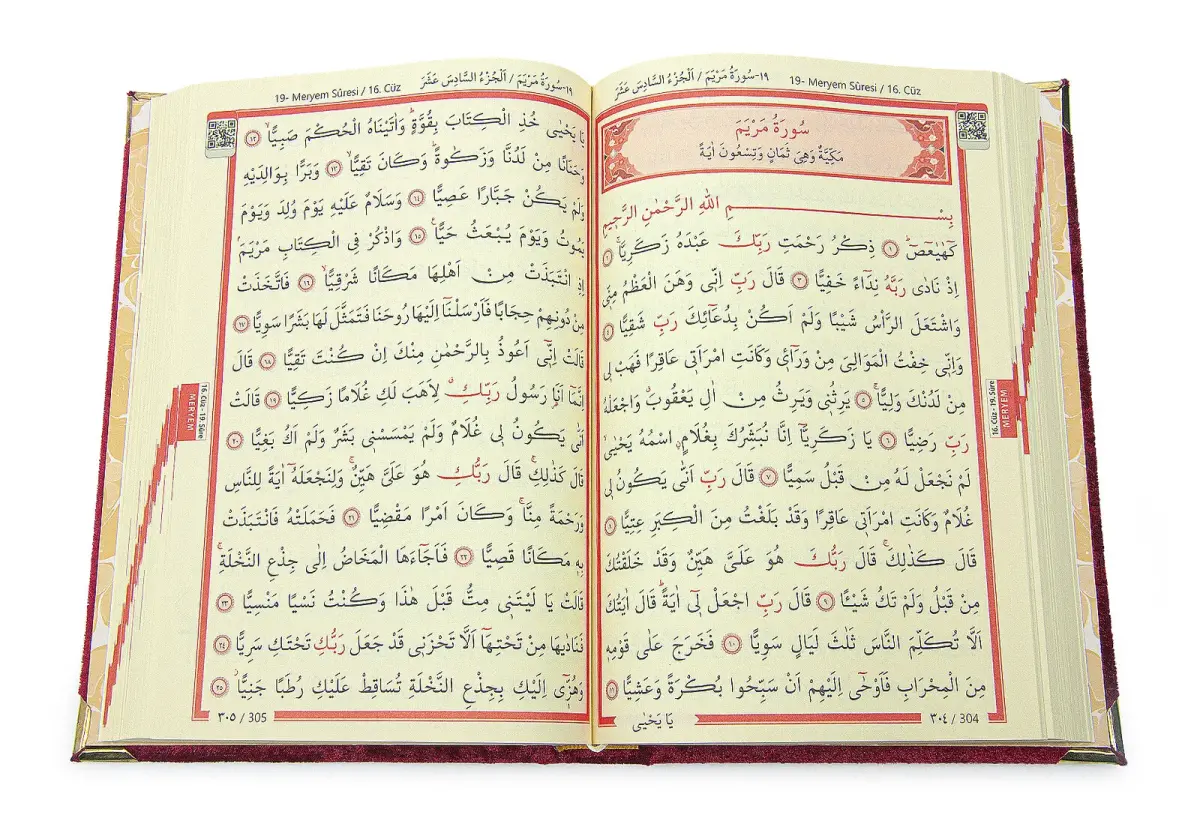 19- Meryem Sûresi / 16. Cüz
١٩-سُورَةُ مَرْيَمَ / اَلْجُزْءُ السَّادِسَ عَشَرَ
سُورَةُ مَرْيَمَ
مَكِّيَّةٌ وَهِيَ ثَمَانٍ وَتِسْعُونَ اٰيَةً
بِسْمِ اللّٰهِ الرَّحْمٰنِ الرَّح۪يمِ
كٓهٰيٰعٓصٓ ۜ ﴿١﴾ ذِكْرُ رَحْمَتِ رَبِّكَ عَبْدَهُ زَكَرِيَّاۚ ﴿٢﴾
اِذْ نَادٰى رَبَّهُ نِدَٓاءً خَفِيًّا ﴿٣﴾ قَالَ رَبِّ اِنّ۪ي وَهَنَ الْعَظْمُ مِنّ۪ي
وَاشْتَعَلَ الرَّأْسُ شَيْبًا وَلَمْ اَكُنْ بِدُعَٓائِكَ رَبِّ شَقِيًّا ﴿٤﴾
وَاِنّ۪ي خِفْتُ الْمَوَالِيَ مِنْ وَرَٓاء۪ي وَكَانَتِ امْرَاَت۪ي عَاقِرًا فَهَبْ ل۪ي
مِنْ لَدُنْكَ وَلِيًّاۙ ﴿٥﴾ يَرِثُن۪ي وَيَرِثُ مِنْ اٰلِ يَعْقُوبَۗ وَاجْعَلْهُ
رَبِّ رَضِيًّا ﴿٦﴾ يَا زَكَرِيَّٓا اِنَّا نُبَشِّرُكَ بِغُلَامٍۨ اسْمُهُ يَحْيٰىۙ
لَمْ نَجْعَلْ لَهُ مِنْ قَبْلُ سَمِيًّا ﴿٧﴾ قَالَ رَبِّ اَنّٰى يَكُونُ ل۪ي
غُلَامٌ وَكَانَتِ امْرَاَت۪ي عَاقِرًا وَقَدْ بَلَغْتُ مِنَ الْكِبَرِ عِتِيًّا ﴿٨﴾
قَالَ كَذٰلِكَۚ قَالَ رَبُّكَ هُوَ عَلَيَّ هَيِّنٌ وَقَدْ خَلَقْتُكَ
مِنْ قَبْلُ وَلَمْ تَكُ شَيْـًٔا ﴿٩﴾ قَالَ رَبِّ اجْعَلْ ل۪ٓي اٰيَةًۜ قَالَ اٰيَتُكَ
اَلَّا تُكَلِّمَ النَّاسَ ثَلٰثَ لَيَالٍ سَوِيًّا ﴿١٠﴾ فَخَرَجَ عَلٰى قَوْمِه۪
مِنَ الْمِحْرَابِ فَاَوْحٰٓى اِلَيْهِمْ اَنْ سَبِّحُوا بُكْرَةً وَعَشِيًّا ﴿١١﴾
16. Cüz - 19. Sûre
MERYEM
٣٠٤ / 304
يَا يَحْيٰى
19- Meryem Sûresi / 16. Cüz
١٩-سُورَةُ مَرْيَمَ / اَلْجُزْءُ السَّادِسَ عَشَرَ
يَا يَحْيٰى خُذِ الْكِتَابَ بِقُوَّةٍۜ وَاٰتَيْنَاهُ الْحُكْمَ صَبِيًّاۙ ﴿١٢﴾
وَحَنَانًا مِنْ لَدُنَّا وَزَكٰوةًۜ وَكَانَ تَقِيًّاۙ ﴿١٣﴾ وَبَرًّا بِوَالِدَيْهِ
وَلَمْ يَكُنْ جَبَّارًا عَصِيًّا ﴿١٤﴾ وَسَلَامٌ عَلَيْهِ يَوْمَ وُلِدَ وَيَوْمَ
يَمُوتُ وَيَوْمَ يُبْعَثُ حَيًّا۟ ﴿١٥﴾ وَاذْكُرْ فِي الْكِتَابِ مَرْيَمَۢ
اِذِ انْتَبَذَتْ مِنْ اَهْلِهَا مَكَانًا شَرْقِيًّاۙ ﴿١٦﴾ فَاتَّخَذَتْ
مِنْ دُونِهِمْ حِجَابًا فَاَرْسَلْنَٓا اِلَيْهَا رُوحَنَا فَتَمَثَّلَ لَهَا بَشَرًا سَوِيًّا ﴿١٧﴾
قَالَتْ اِنّ۪ٓي اَعُوذُ بِالرَّحْمٰنِ مِنْكَ اِنْ كُنْتَ تَقِيًّا ﴿١٨﴾ قَالَ
اِنَّمَٓا اَنَا۬ رَسُولُ رَبِّكِۗ لِاَهَبَ لَكِ غُلَامًا زَكِيًّا ﴿١٩﴾ قَالَتْ
اَنّٰى يَكُونُ ل۪ي غُلَامٌ وَلَمْ يَمْسَسْن۪ي بَشَرٌ وَلَمْ اَكُ بَغِيًّا ﴿٢٠﴾
قَالَ كَذٰلِكِۚ قَالَ رَبُّكِ هُوَ عَلَيَّ هَيِّنٌۚ وَلِنَجْعَلَهُٓ اٰيَةً لِلنَّاسِ
وَرَحْمَةً مِنَّاۚ وَكَانَ اَمْرًا مَقْضِيًّا ﴿٢١﴾ فَحَمَلَتْهُ فَانْتَبَذَتْ
بِه۪ مَكَانًا قَصِيًّا ﴿٢٢﴾ فَاَجَٓاءَهَا الْمَخَاضُ اِلٰى جِذْعِ النَّخْلَةِۚ
قَالَتْ يَا لَيْتَن۪ي مِتُّ قَبْلَ هٰذَا وَكُنْتُ نَسْيًا مَنْسِيًّا ﴿٢٣﴾
فَنَادٰيهَا مِنْ تَحْتِهَٓا اَلَّا تَحْزَن۪ي قَدْ جَعَلَ رَبُّكِ تَحْتَكِ سَرِيًّا ﴿٢٤﴾
وَهُزّ۪ٓي اِلَيْكِ بِجِذْعِ النَّخْلَةِ تُسَاقِطْ عَلَيْكِ رُطَبًا جَنِيًّاۘ ﴿٢٥﴾
16. Cüz - 19. Sûre
MERYEM
٣٠٥ / 305